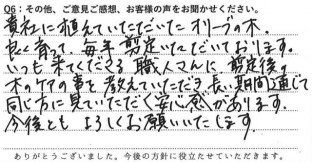 Q6：その他、ご意見ご感想、お客様の声をお聞かせください。
貴社に植えていただいたオリーブの木。
良く育って、毎年剪定いただいております。
いつも来てくださる職人さんに剪定後の
木のケアの事を教えていただき長い期間通じて
同じ方に見ていただく安心感があります。
今後とも よろしくお願いいたします。
ありがとうございました。今後の方針に役立たせていただきます。